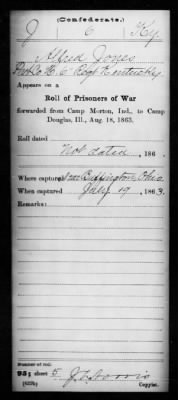 (Confederate.)
J 6 Ky.
Alfred Jones
Pvt Co. H. 6 Regt Kentucky
Appears on a
Roll of Prisoners of War
forwarded from Camp Morton, Ind., to Camp
Douglas, Ill., Aug. 18, 1863.
Roll dated
Not dated, 186 .
Where captured Near Buffington, Ohio
When captured July 19, 1863.
Remarks:
Number of roll:
95; sheet 5
(639b) Copyist.